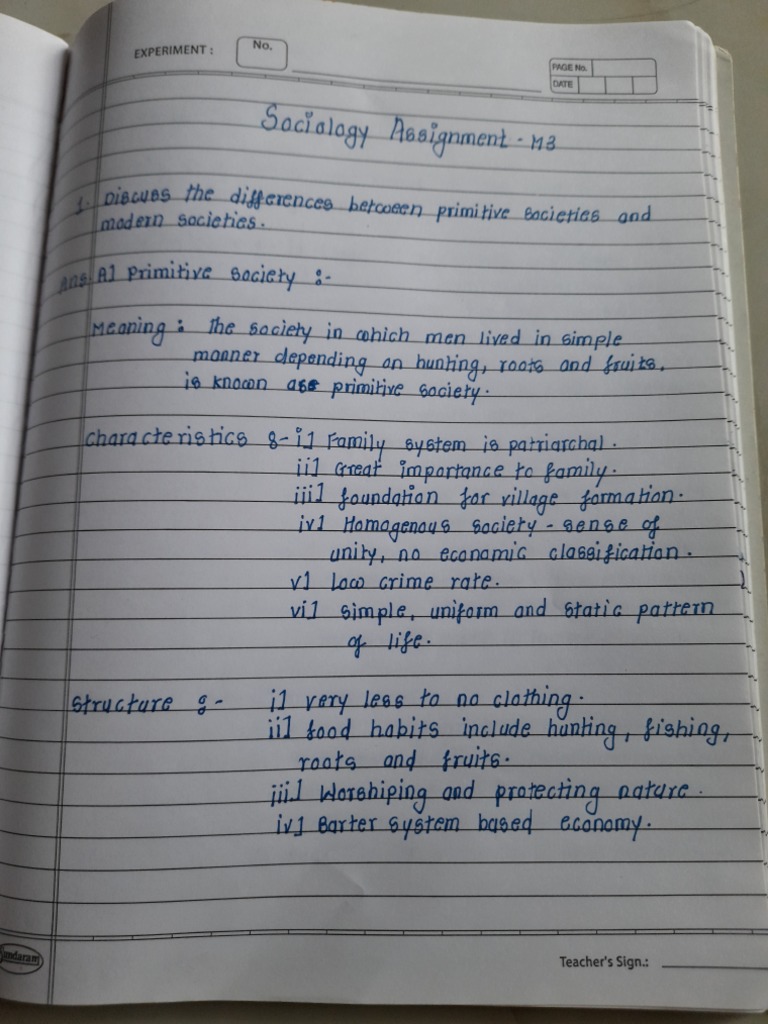 EXPERIMENT :
No.
PAGE No.
DATE
Sociology Assignment - M3
1. Discuss the differences between primitive societies and
modern societies.
Ans. A] Primitive society :-
Meaning : The society in which men lived in simple
manner depending on hunting, roots and fruits.
is known as primitive society.
Characteristics :- i] Family system is patriarchal.
ii] Great importance to family.
iii] foundation for village formation.
iv] Homogenous society - sense of
unity, no economic classification.
v] low crime rate.
vi] simple, uniform and static pattern
of life.
Structure :- i] very less to no clothing.
ii] food habits include hunting, fishing,
roots and fruits.
iii] Worshiping and protecting nature.
iv] Barter system based economy.
Teacher's Sign.: